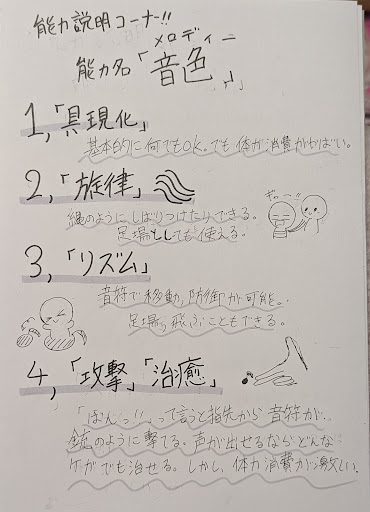 能力説明コーナー!!
メロディー
能力名「音色」
1,「具現化」
基本的に何でもOK。でも体力消費がやばい。
2,「旋律」
縄のようにしばりつけたりできる。
足場としても使える。
ギュー!!
3,「リズム」
音符で移動,防御が可能。
足場,飛ぶこともできる。
4,「攻撃」「治癒」
「ばんっ!!」って言うと指先から音符が、
銃のように撃てる。声が出せるならどんな
ケガでも治せる。しかし、体力消費が激しい。